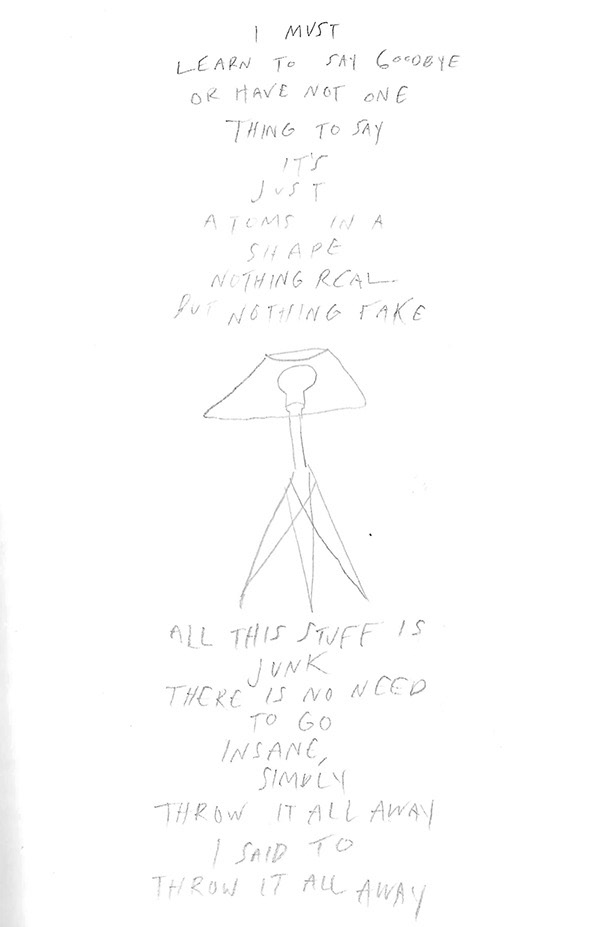 I MUST
LEARN TO SAY GOODBYE
OR HAVE NOT ONE
THING TO SAY
IT'S
JUST
ATOMS IN A
SHAPE
NOTHING REAL.
BUT NOTHING FAKE
ALL THIS STUFF IS
JUNK
THERE IS NO NEED
TO GO
INSANE,
SIMPLY
THROW IT ALL AWAY
I SAID TO
THROW IT ALL AWAY